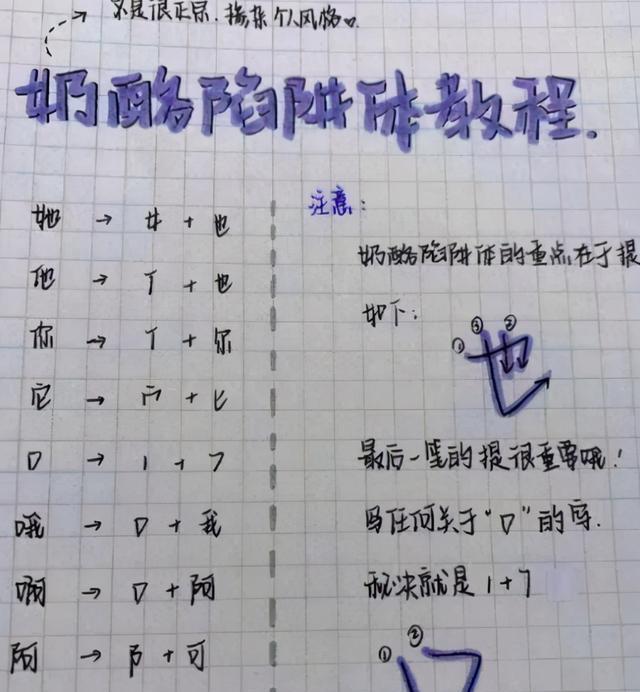 不是很正宗，掺杂个人风格。
奶酪陷阱体教程.
她 → 女 + 也
他 → 亻 + 也
你 → 亻 + 尔
它 → 宀 + 匕
口 → 1 + 7
哦 → 口 + 我
啊 → 口 + 阿
阿 → 阝 + 可
注意：
奶酪陷阱体的重点在于提
如下：
① ③ ②
也
最后一笔的提很重要哦！
写任何关于“口”的字.
秘诀就是 1 + 7
① ②